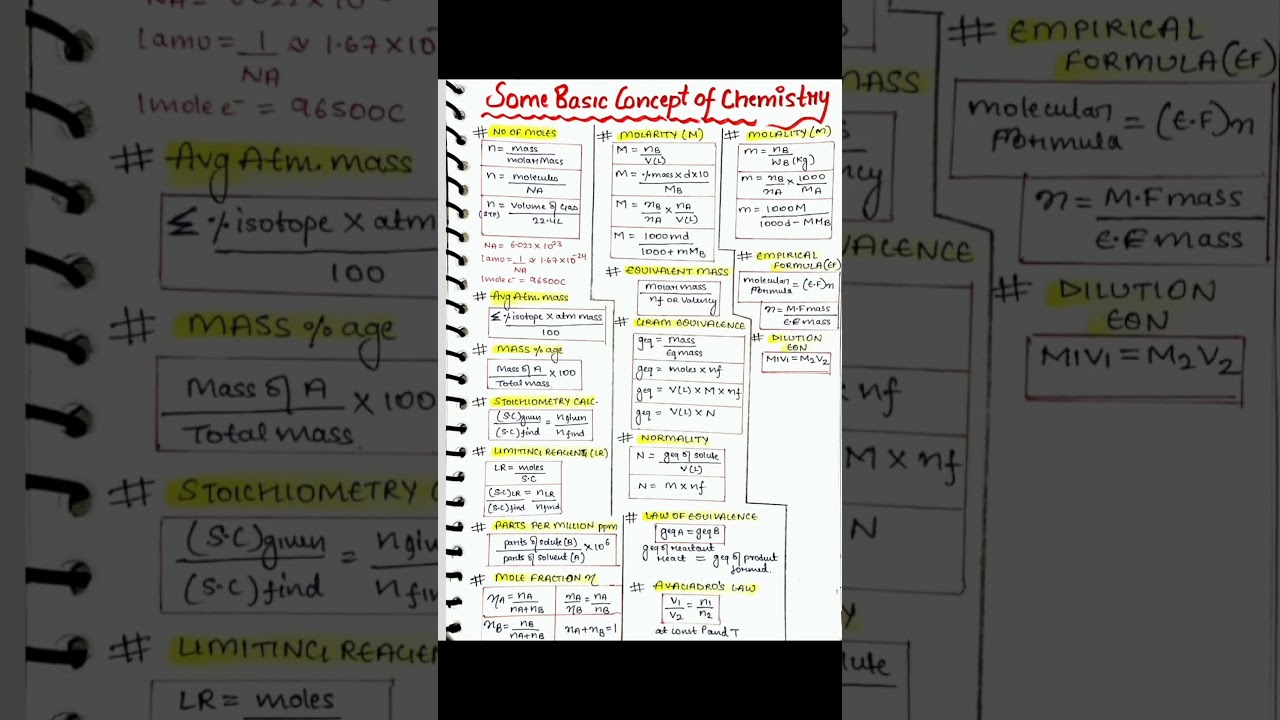 Some Basic Concept of Chemistry
# NO OF MOLES
n = mass / molar Mass
n = molecules / NA
n = Volume of Gas / 22.4L
(STP)
NA = 6.022 × 10²³
1amu = 1/NA ≈ 1.67×10⁻²⁴
1mole e⁻ = 96500C
# Avg Atm. mass
Σ % isotope × atm mass / 100
# MASS % age
Mass of A / Total mass × 100
# STOICHIOMETRY CALC.
(S.C)given / (S.C)find = n given / n find
# LIMITING REAGENT (LR)
LR = moles / S.C
(S.C)LR / (S.C)find = nLR / nfind
# PARTS PER MILLION ppm
parts of solute (B) / parts of solvent (A) × 10⁶
# MOLE FRACTION η
ηA = nA / nA+nB
ηA / ηB = nA / nB
ηB = nB / nA+nB
ηA + ηB = 1
# MOLARITY (M)
M = nB / V(L)
M = % mass × d × 10 / MB
M = nB / nA × nA / V(L)
M = 1000md / 1000 + mMB
# EQUIVALENT MASS
molar mass / nf OR Valency
# GRAM EQUIVALENCE
geq = mass / Eq mass
geq = moles × nf
geq = V(L) × M × nf
geq = V(L) × N
# NORMALITY
N = geq of solute / V(L)
N = M × nf
# LAW OF EQUIVALENCE
geq A = geq B
geq of reactant react = geq of product formed.
# AVAGADRO'S LAW
V1 / V2 = n1 / n2
at const P and T
# MOLALITY (m)
m = nB / WB (Kg)
m = nB / nA × 1000 / MA
m = 1000M / 1000d - MMB
# EMPIRICAL
FORMULA (EF)
molecular formula = (E.F)n
n = M.F mass / E.F mass
# DILUTION
EQN
M1V1 = M2V2